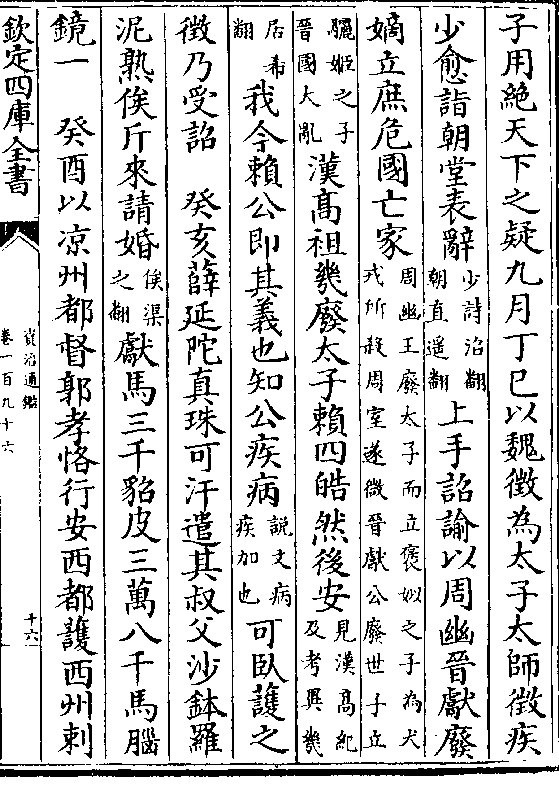 子用絶天下之疑九月丁巳以魏徵為太子太師徵疾
少愈詣朝堂表辭少詩沼翻朝直遥翻上手詔諭以周幽晉獻廢
嫡立庶危國亡家周幽王廢太子而立褒姒之子為犬戎所殺周室遂微晉獻公廢世子立
驪姬之子晉國大亂漢髙祖幾廢太子賴四皓然後安見漢髙紀及考異幾
居希翻我今賴公即其義也知公疾病説文病疾加也可臥護之
徵乃受詔 癸亥薛延陀真珠可汗遣其叔父沙鉢羅
泥熟俟斤來請婚俟渠之翻獻馬三千貂皮三萬八千馬腦
鏡一 癸酉以凉州都督郭孝恪行安西都護西州刺
欽定四庫全書
資治通鑑
卷一百九十六
十六